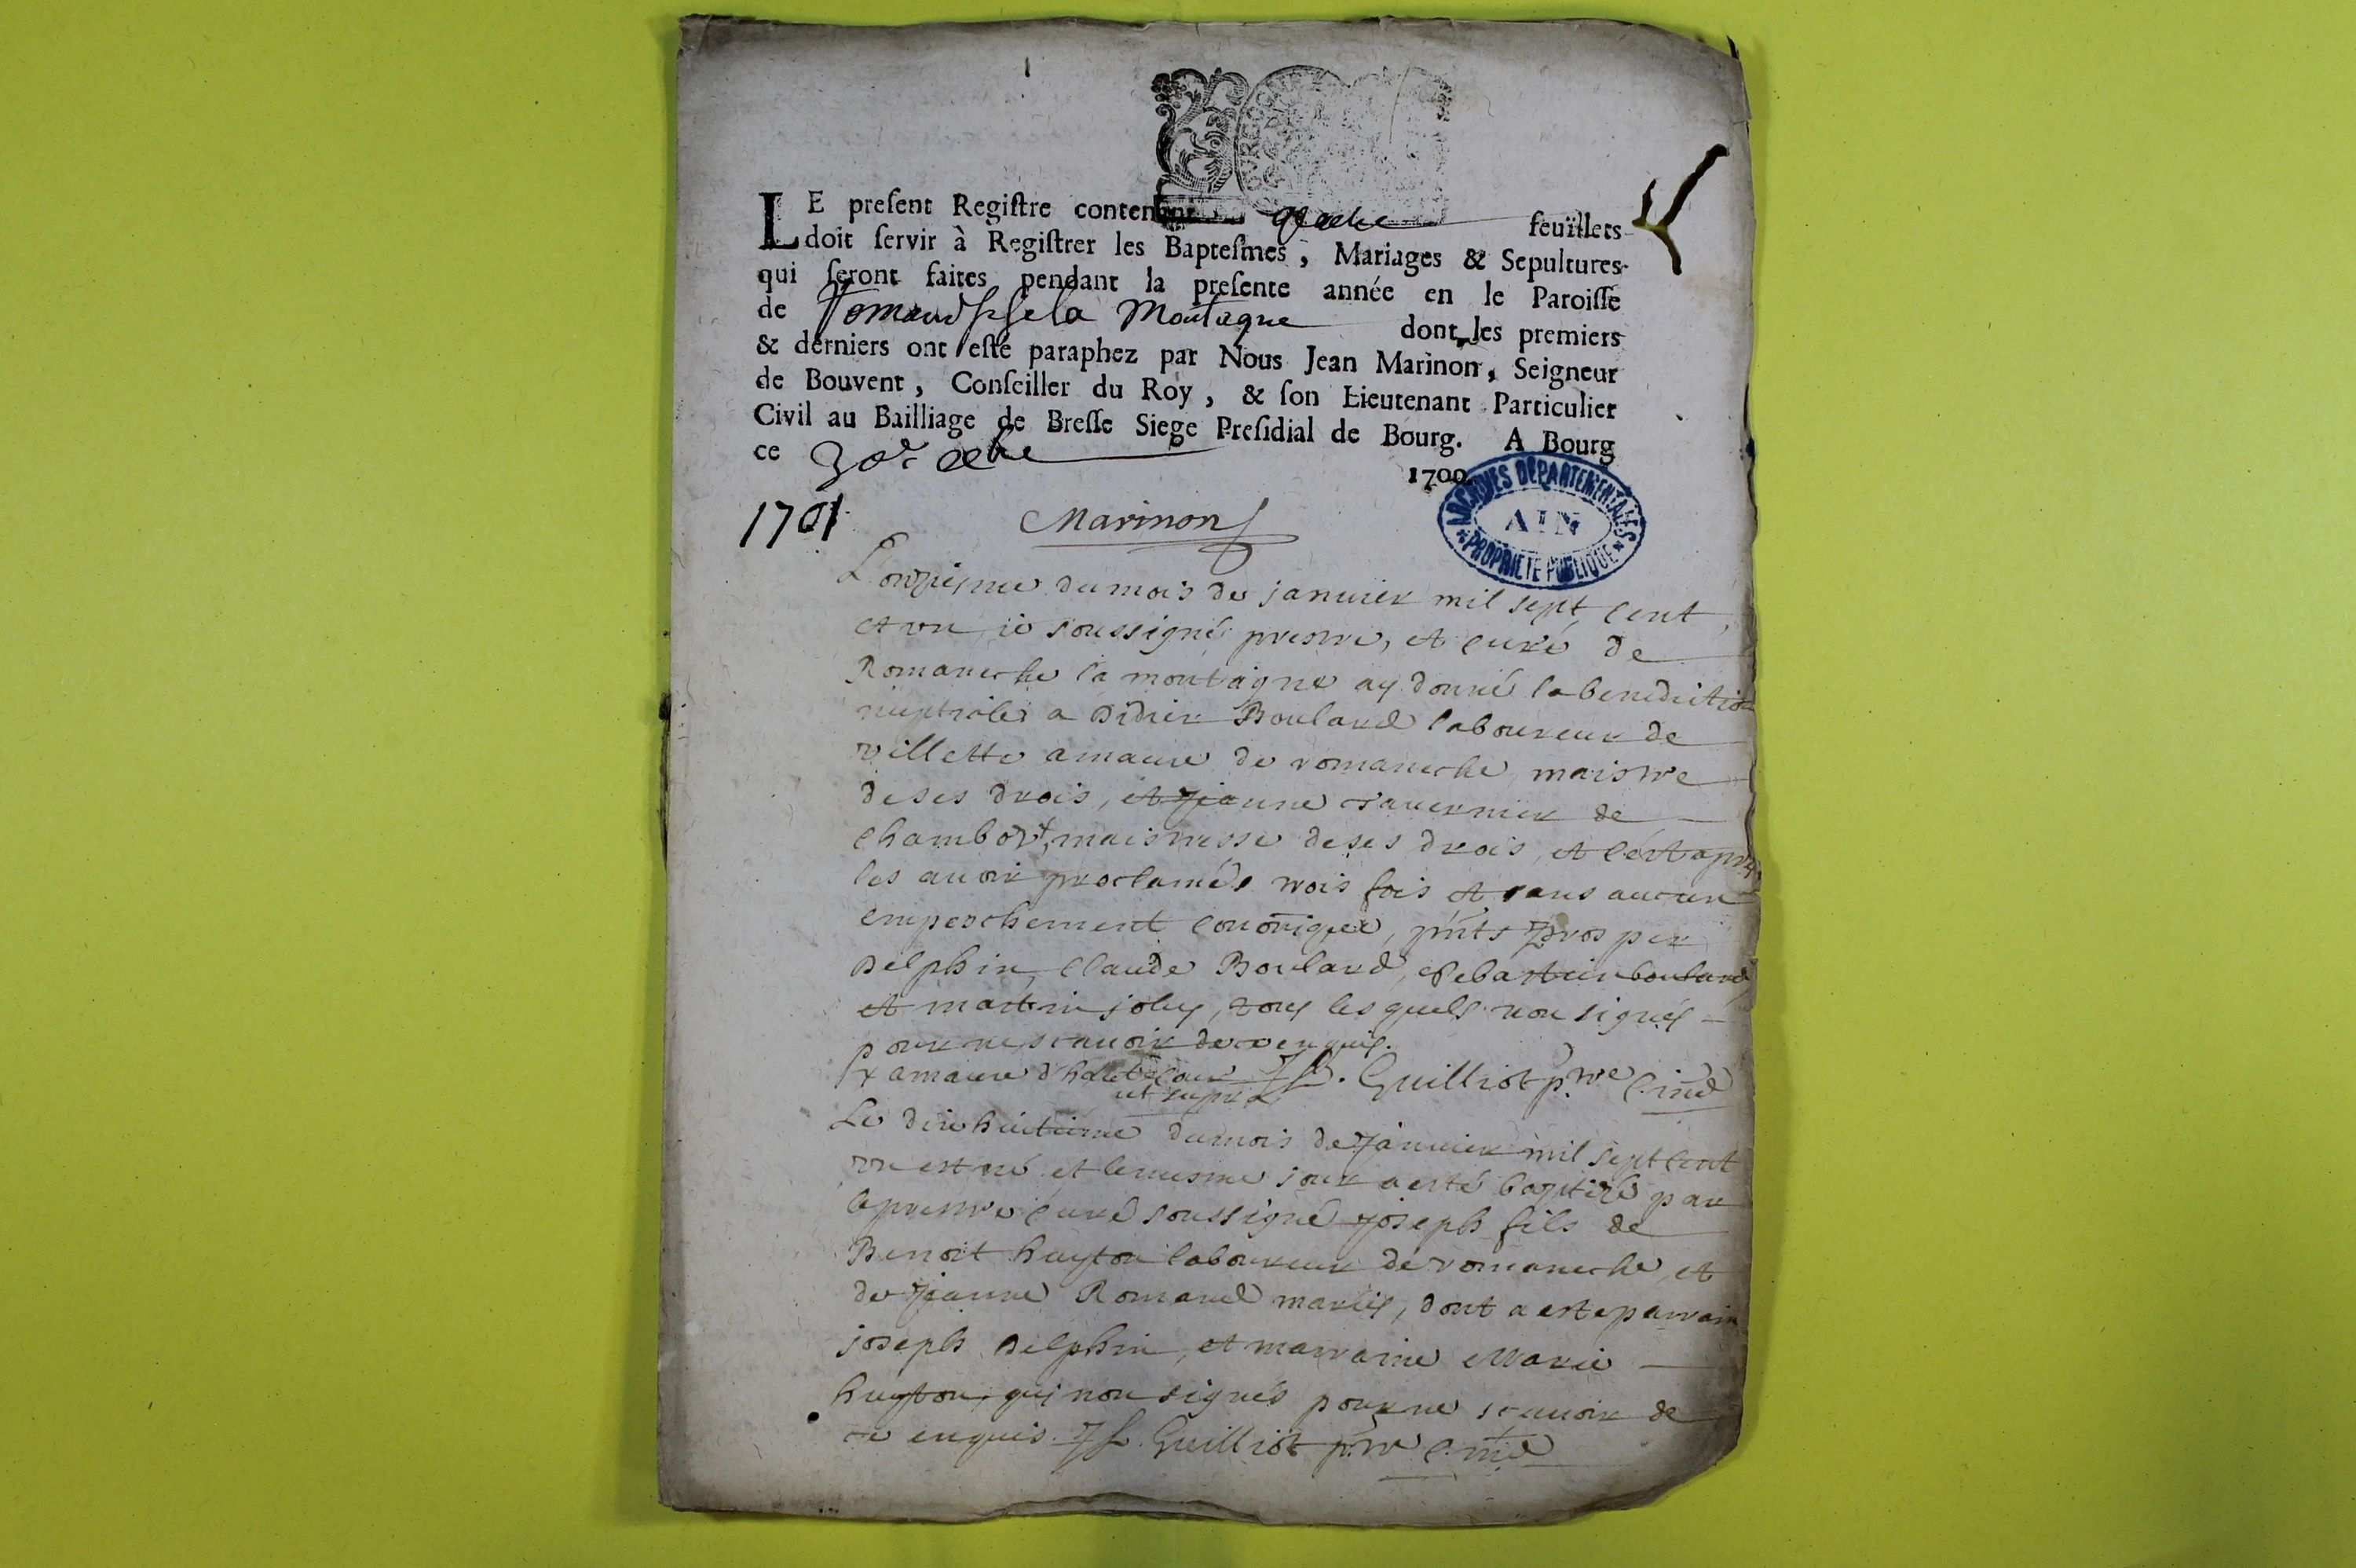 LE preſent Regiſtre contenant quatre feuïllets
doit ſervir à Regiſtrer les Bapteſmes, Mariages & Sepultures
qui ſeront faites pendant la preſente année en le Paroiſſe
de la Montagne dont les premiers
& derniers ont eſté paraphez par Nous Jean Marinon, Seigneur
de Bouvent, Conſeiller du Roy, & ſon Lieutenant Particulier
Civil au Bailliage de Breſſe Siege Preſidial de Bourg. A Bourg
ce 30e xbre 1700.
ARCHIVES DEPARTEMENTALES
AIN
PROPRIETE PUBLIQUE
1701
Marinon
L'onzieme du mois de janvier mil sept cent
et un je soussigné prestre, et curé de
Romaneche la montagne ay donné la benediction
nuptiale a Didier Boulard laboureur de
villette amaure de romaneche maistre
de ses drois, et Jeanne Tavernier de
chambod + maistresse de ses drois, et c'est apres
les avoir proclamés trois fois et sans aucun
empeschement cononique, pnts Prosper
Delphin, Claude Boulard, Sebastien boulard
et martin joly, tous lesquels non signés
pour ne scavoir de ce enquis.
+ amaure d'hautecour J f. Guilliot ptre
ut supra
Le dixhuitieme du mois de Janvier mil sept cent
un est né et le mesme jour a esté baptizé par
le prestre curé soussigné Joseph fils de
Benoit huyton laboureur de romaneche, et
de Jeanne Romand mariés, dont a esté parrain
joseph Delphin, et marraine Marie
huyton, qui non signés pour ne scavoir de
ce enquis. J f. Guilliot ptre